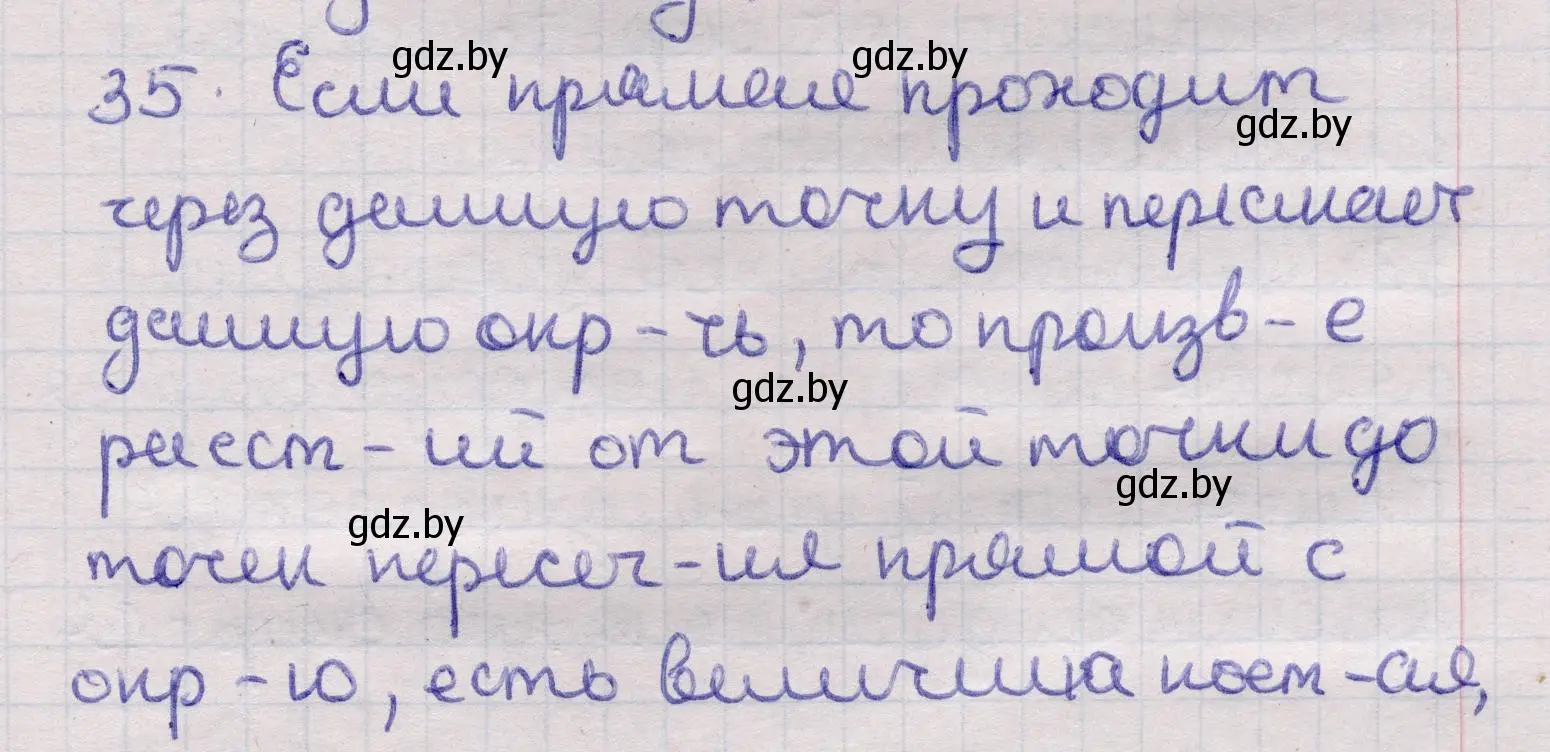 35. Если прямая проходит
через данную точку и пересекает
данную окр-ть, то произв-е
расст-ий от этой точки до
точек пересеч-ия прямой с
окр-ю, есть величина пост-ая,
gdz.by
gdz.by
gdz.by
gdz.by
gdz.by
gdz.by